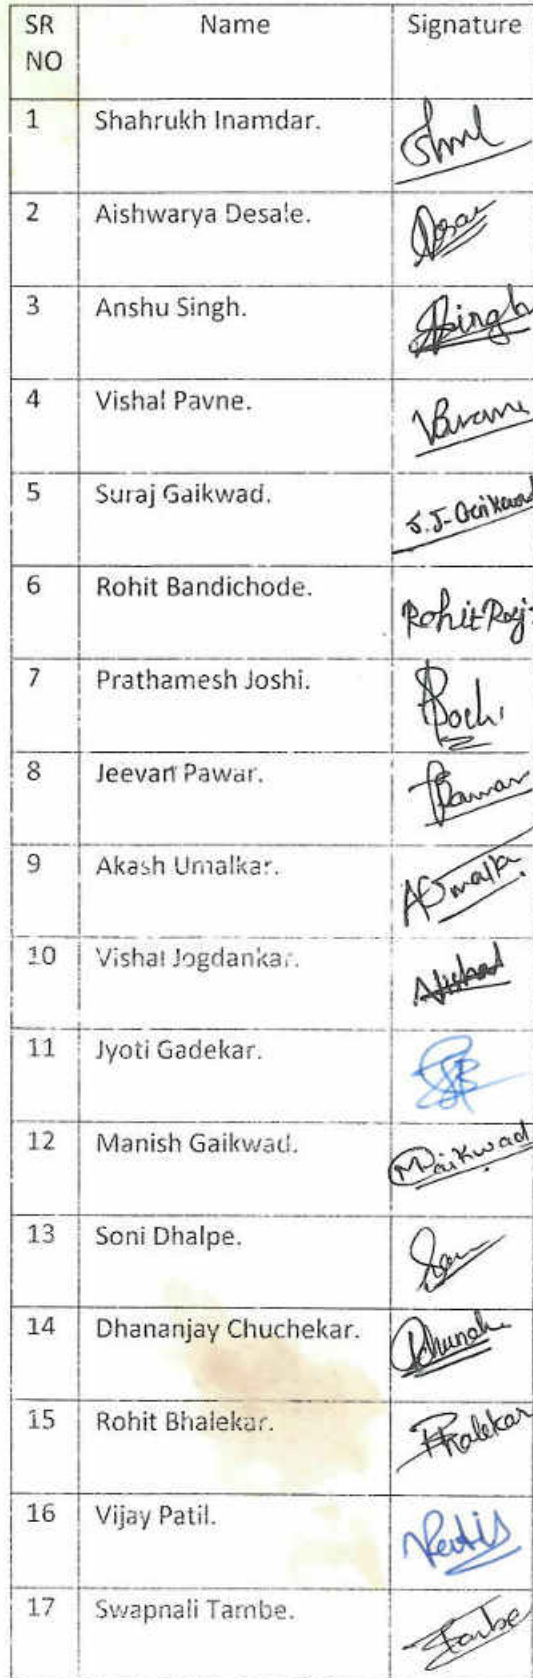 SR NO Name Signature
1 Shahrukh Inamdar.
2 Aishwarya Desale.
3 Anshu Singh. Singh
4 Vishal Pavne.
5 Suraj Gaikwad. S.J-Gaikwad
6 Rohit Bandichode. Rohit Raj
7 Prathamesh Joshi. Joshi
8 Jeevan Pawar. Pawar
9 Akash Umalkar.
10 Vishal Jogdankar. Vishal
11 Jyoti Gadekar.
12 Manish Gaikwad. M Gaikwad
13 Soni Dhalpe.
14 Dhananjay Chuchekar.
15 Rohit Bhalekar. Bhalekar
16 Vijay Patil.
17 Swapnali Tambe. Tambe